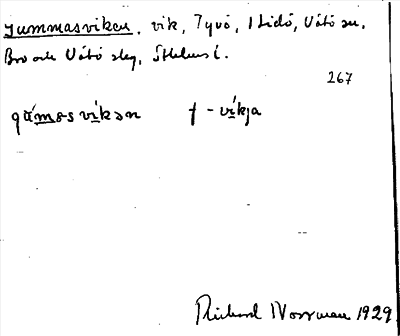 Gummasviken, vik, Tyvö, 1 Lidö, Vätö sn,
Bro och Vätö skg, Sthlms l.
267
gúmasvíkən f -víkja
Rickard Norrman 1929